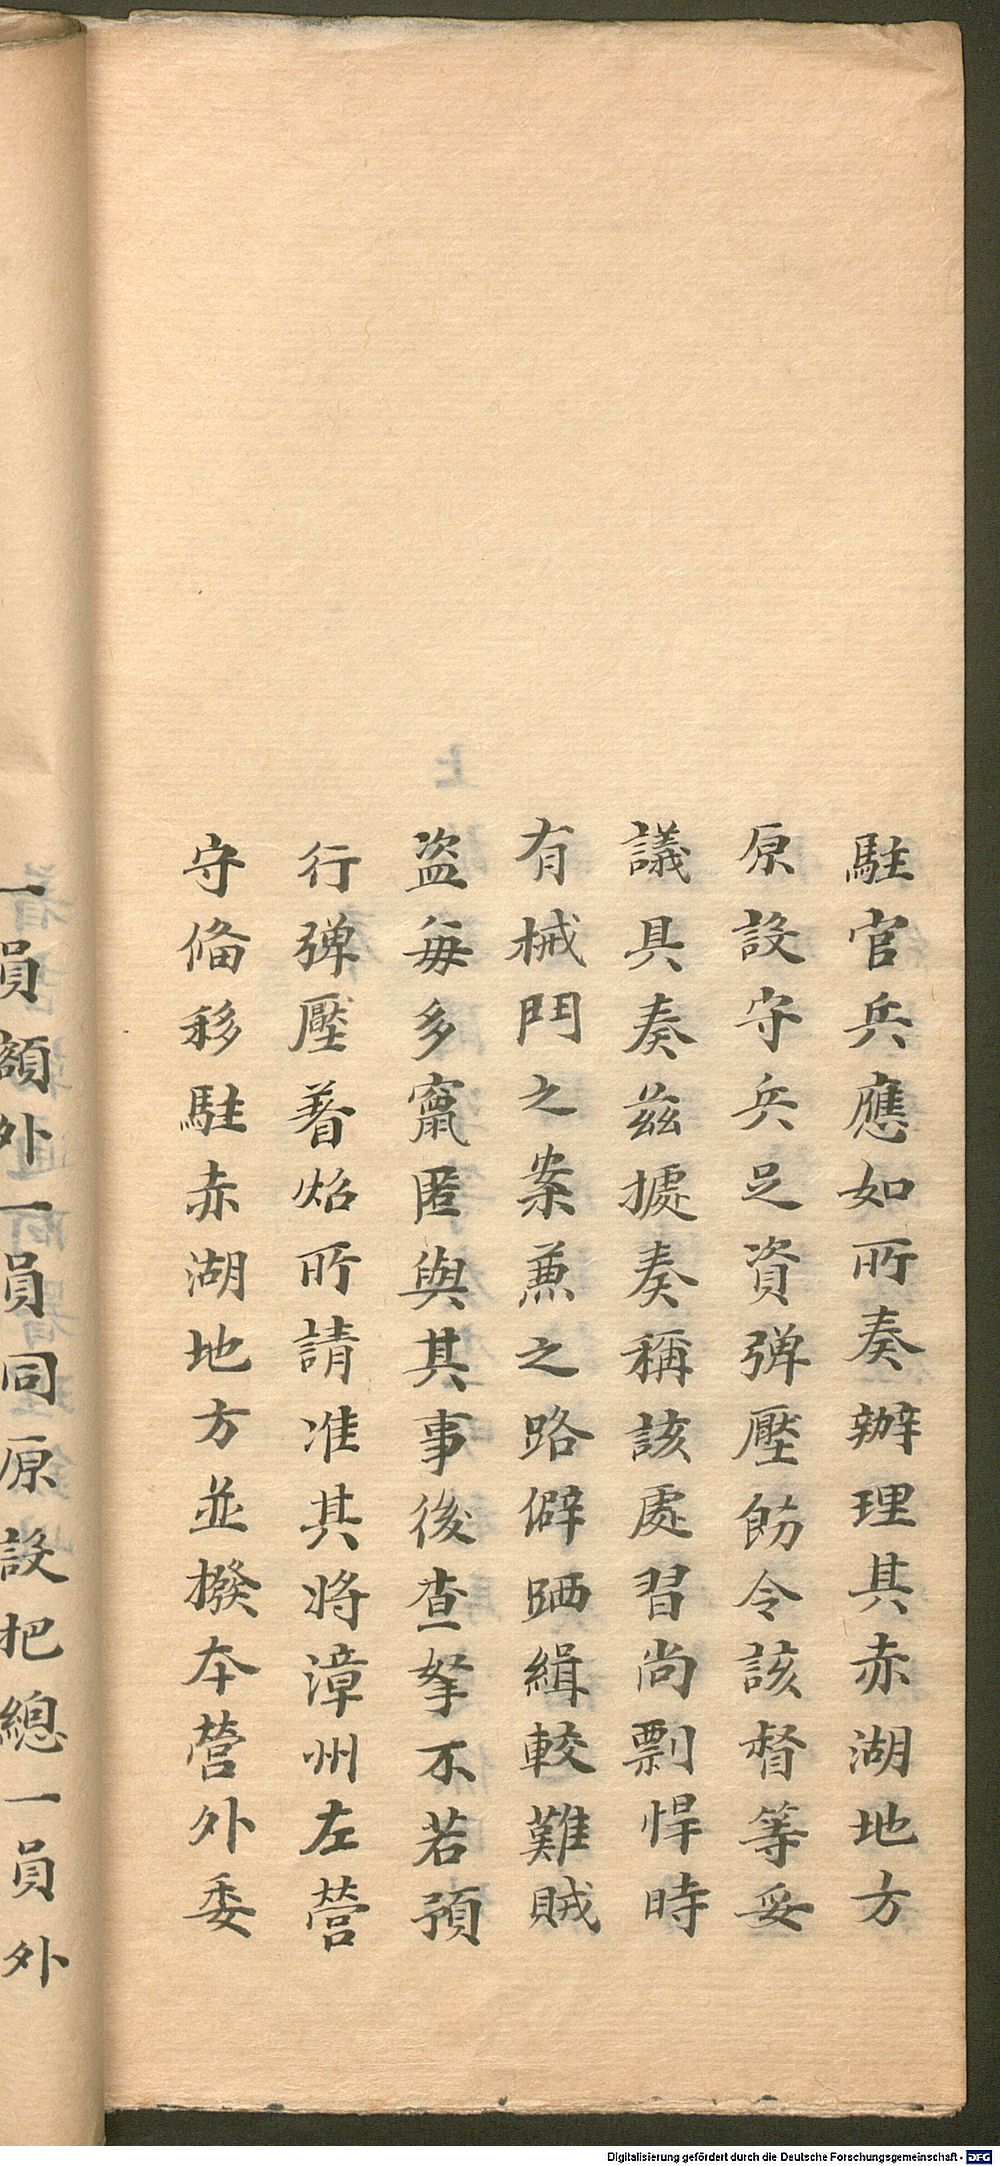 駐官兵應如所奏辦理其赤湖地方
原設守兵足資弹壓飭令該督等妥
議具奏茲據奏稱該處習尚剽悍時
有械鬥之案兼之路僻陋緝較難賊
盜每多竄匿與其事後查拏不若預
行弹壓着炤所請准其將漳州左營
守偹移駐赤湖地方並撥本營外委
一員額外一員同原設把總一員外
Digitalisierung gefördert durch die Deutsche Forschungsgemeinschaft - DFG